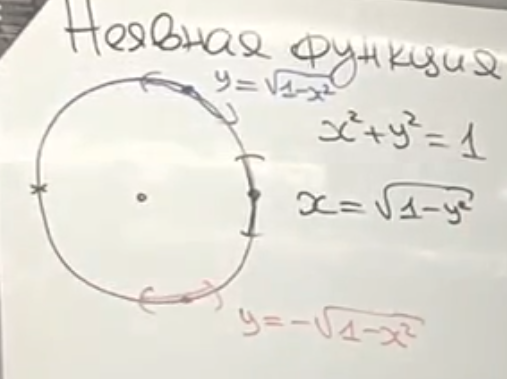 Неявная функция
y = √1-x²
x² + y² = 1
x = √1-y²
y = -√1-x²